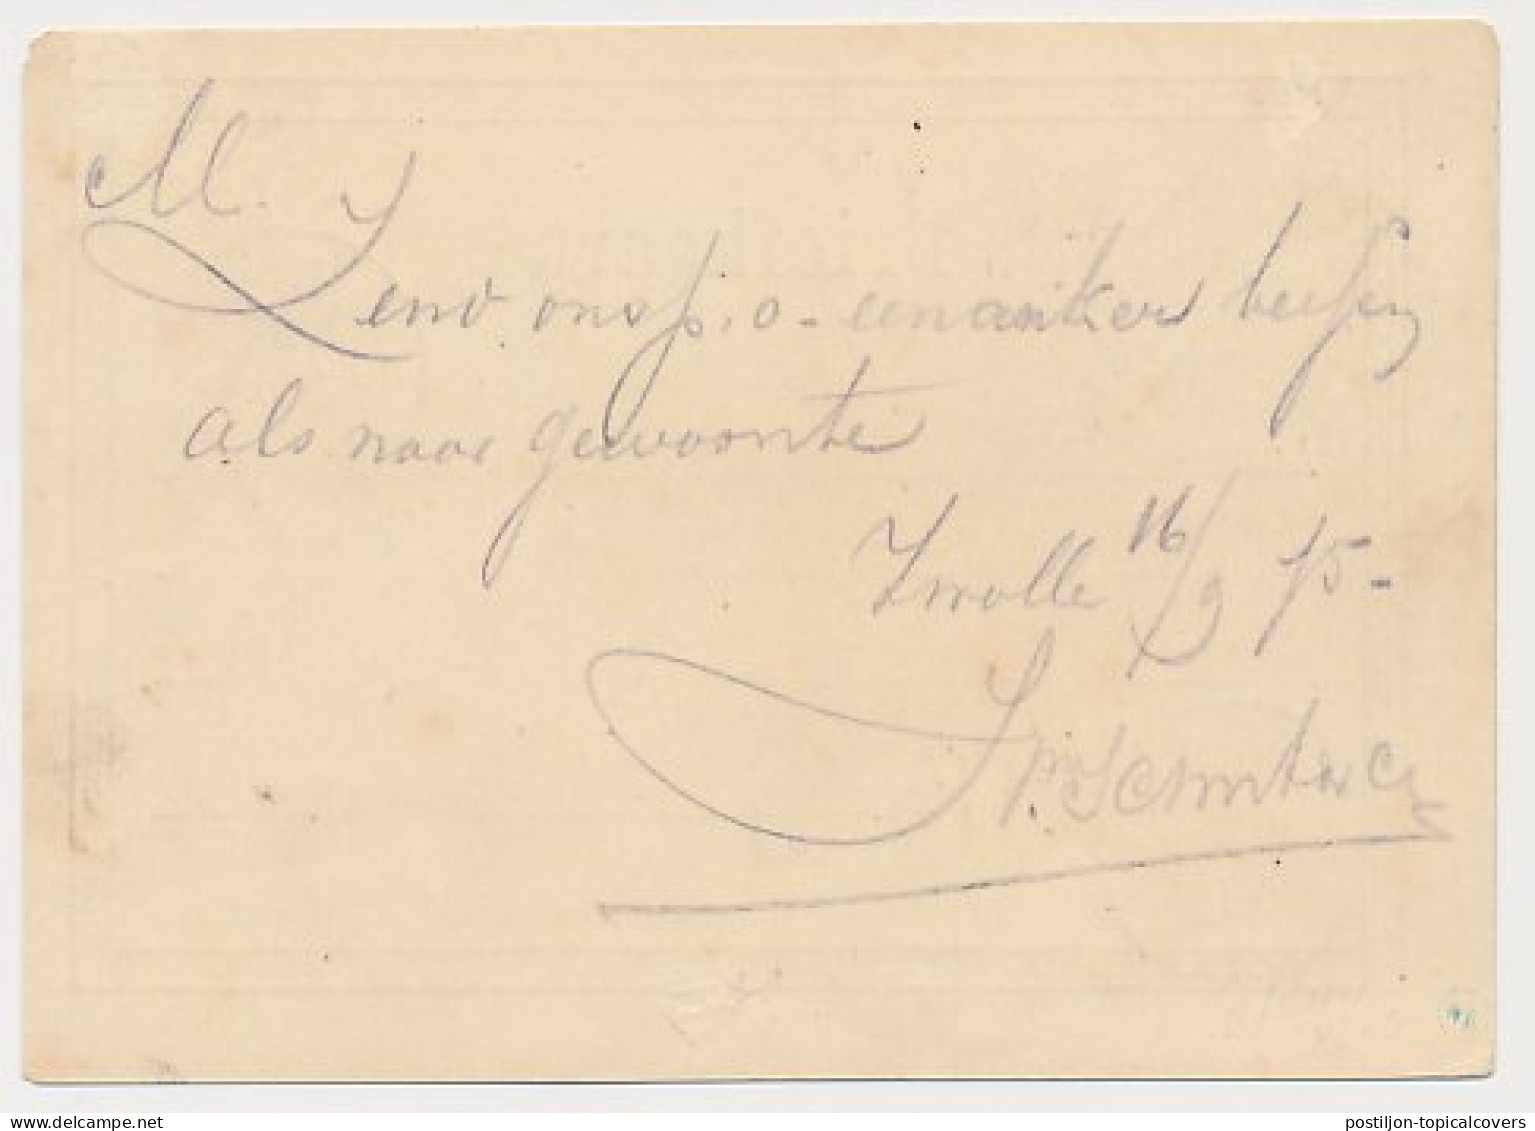 M.
Zend ons p. o. een anker
als naar gewoonte
Zwolle 16/9 75-
delcampe.net
postiljon-topicalcovers